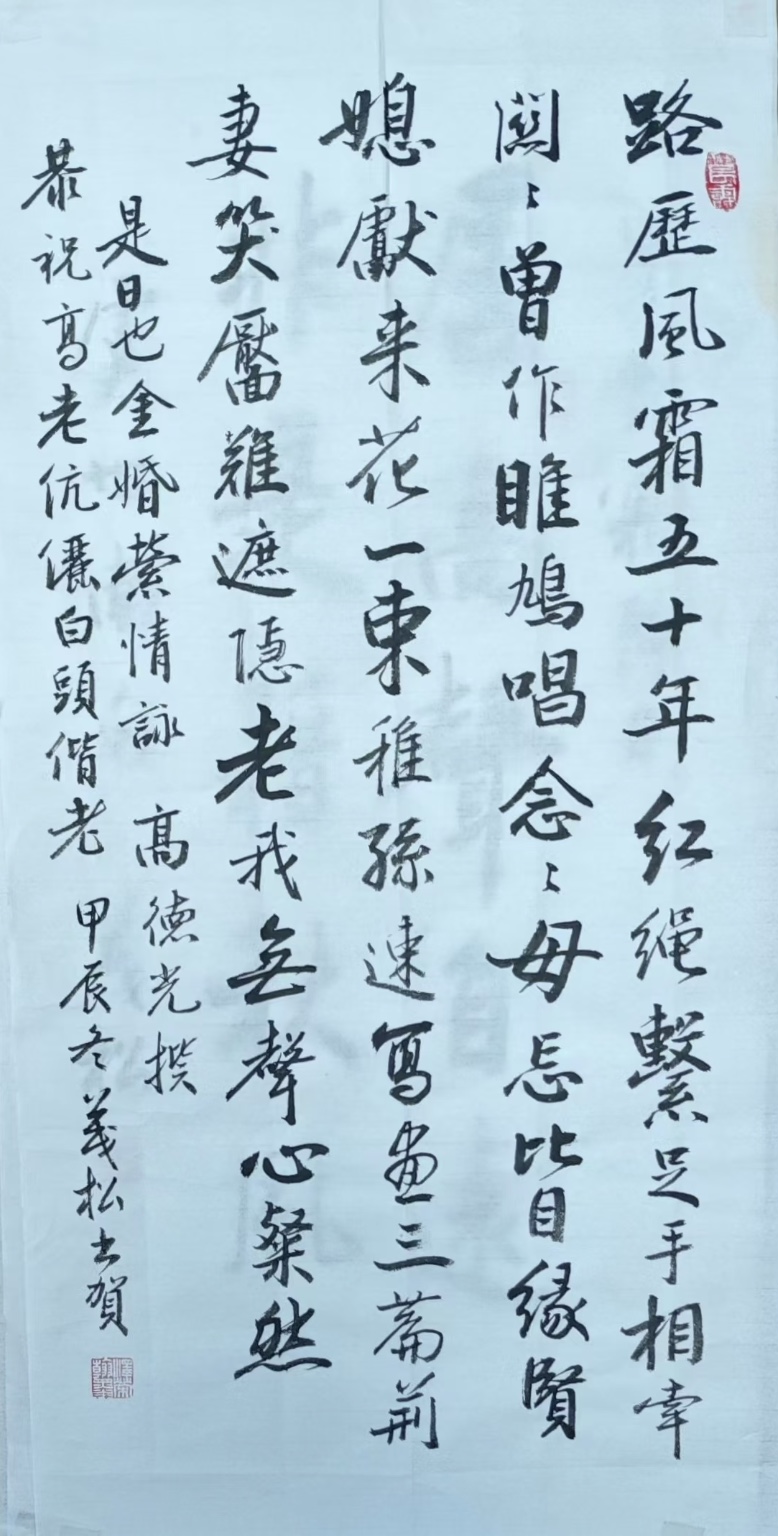 路歷風霜五十年红绳繫足手相牽
關〻曾作雎鳩唱念〻毋忘比目缘賢
媳獻来花一束稚孫速寫畫三篇荆
妻笑靨難遮隱老我無聲心粲然
是日也金婚縈情詠 高德光撰
恭祝高老伉儷白頭偕老 甲辰冬義松书贺